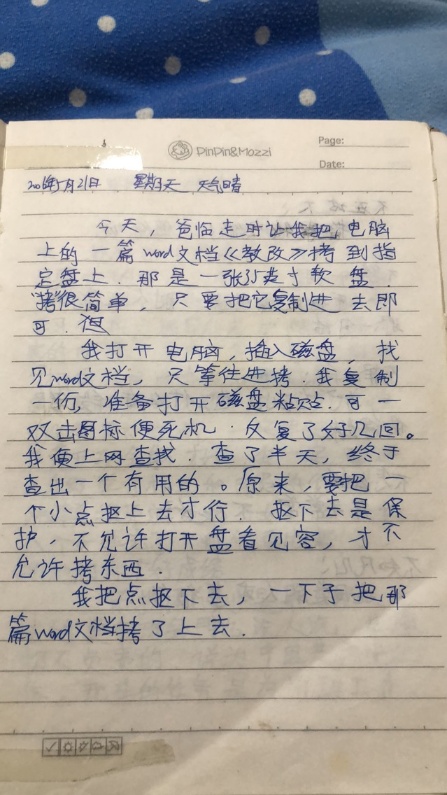 PinPin&Mozzi
Page:
Date:
月21日 星期天 天气晴
今天，爸临走时让我把电脑
上的一篇word文档《教改》拷到指
定盘上．那是一张3.5英寸软盘．
拷很简单，只要把它复制进去即
可．但
我打开电脑，插入磁盘，找
见word文档，只等往进拷．我复制
一份，准备打开磁盘粘贴．可一
双击图标便死机．反复了好几回。
我便上网查找．查了半天，终于
查出一个有用的。原来，要把一
个小点抠上去才行．抠下去是保
护．不允许打开盘看见容，才不
允许拷东西．
我把点抠下去，一下子把那
篇word文档拷了上去．